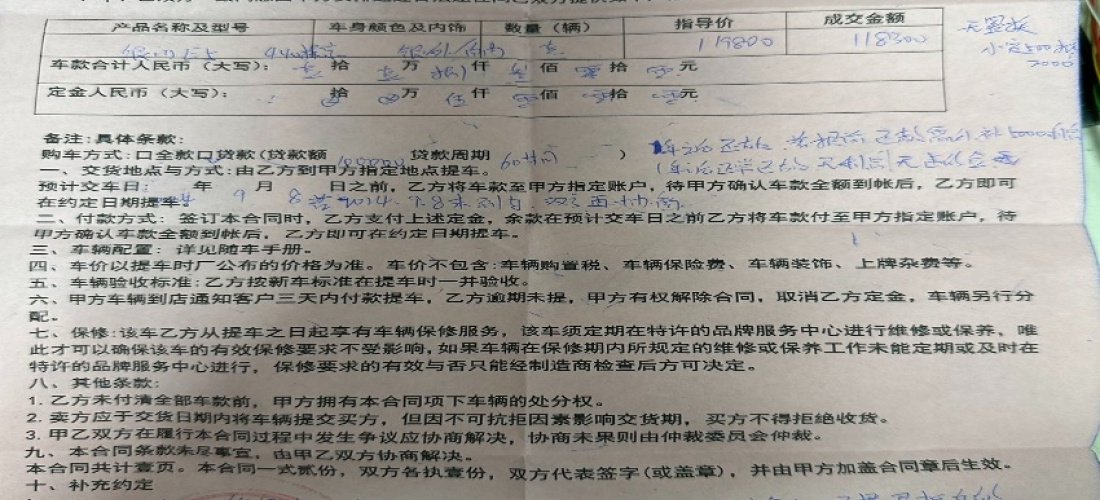 产品名称及型号 车身颜色及内饰 数量（辆） 指导价 成交金额
119800 118300
小定500抵
2000
车款合计人民币（大写）： 壹拾 壹万 捌仟 叁佰 零拾 零元
定金人民币（大写）： 拾 万 伍仟 零佰 零拾 零元
备注：具体条款：
购车方式：口全款口贷款（贷款额 贷款周期 60 ）
一、交货地点与方式：由乙方到甲方指定地点提车。
预计交车日： 年 9 月 8 日之前，乙方将车款至甲方指定账户，待甲方确认车款全额到帐后，乙方即可
在约定日期提车。
二、付款方式：签订本合同时，乙方支付上述定金，余款在预计交车日之前乙方将车款付至甲方指定账户，待
甲方确认车款全额到帐后，乙方即可在约定日期提车。
三、车辆配置：详见随车手册。
四、车价以提车时厂公布的价格为准。车价不包含：车辆购置税、车辆保险费、车辆装饰、上牌杂费等。
五、车辆验收标准：乙方按新车标准在提车时一并验收。
六、甲方车辆到店通知客户三天内付款提车，乙方逾期未提，甲方有权解除合同，取消乙方定金，车辆另行分
配。
七、保修：该车乙方从提车之日起享有车辆保修服务，该车须定期在特许的品牌服务中心进行维修或保养，唯
此才可以确保该车的有效保修要求不受影响，如果车辆在保修期内所规定的维修或保养工作未能定期或及时在
特许的品牌服务中心进行，保修要求的有效与否只能经制造商检查后方可决定。
八、其他条款：
1. 乙方未付清全部车款前，甲方拥有本合同项下车辆的处分权。
2. 卖方应于交货日期内将车辆提交买方，但因不可抗拒因素影响交货期，买方不得拒绝收货。
3. 甲乙双方在履行本合同过程中发生争议应协商解决，协商未果则由仲裁委员会仲裁。
九、本合同条款未尽事宜，由甲乙双方协商解决。
本合同共计壹页。本合同一式贰份，双方各执壹份，双方代表签字（或盖章），并由甲方加盖合同章后生效。
十、补充约定